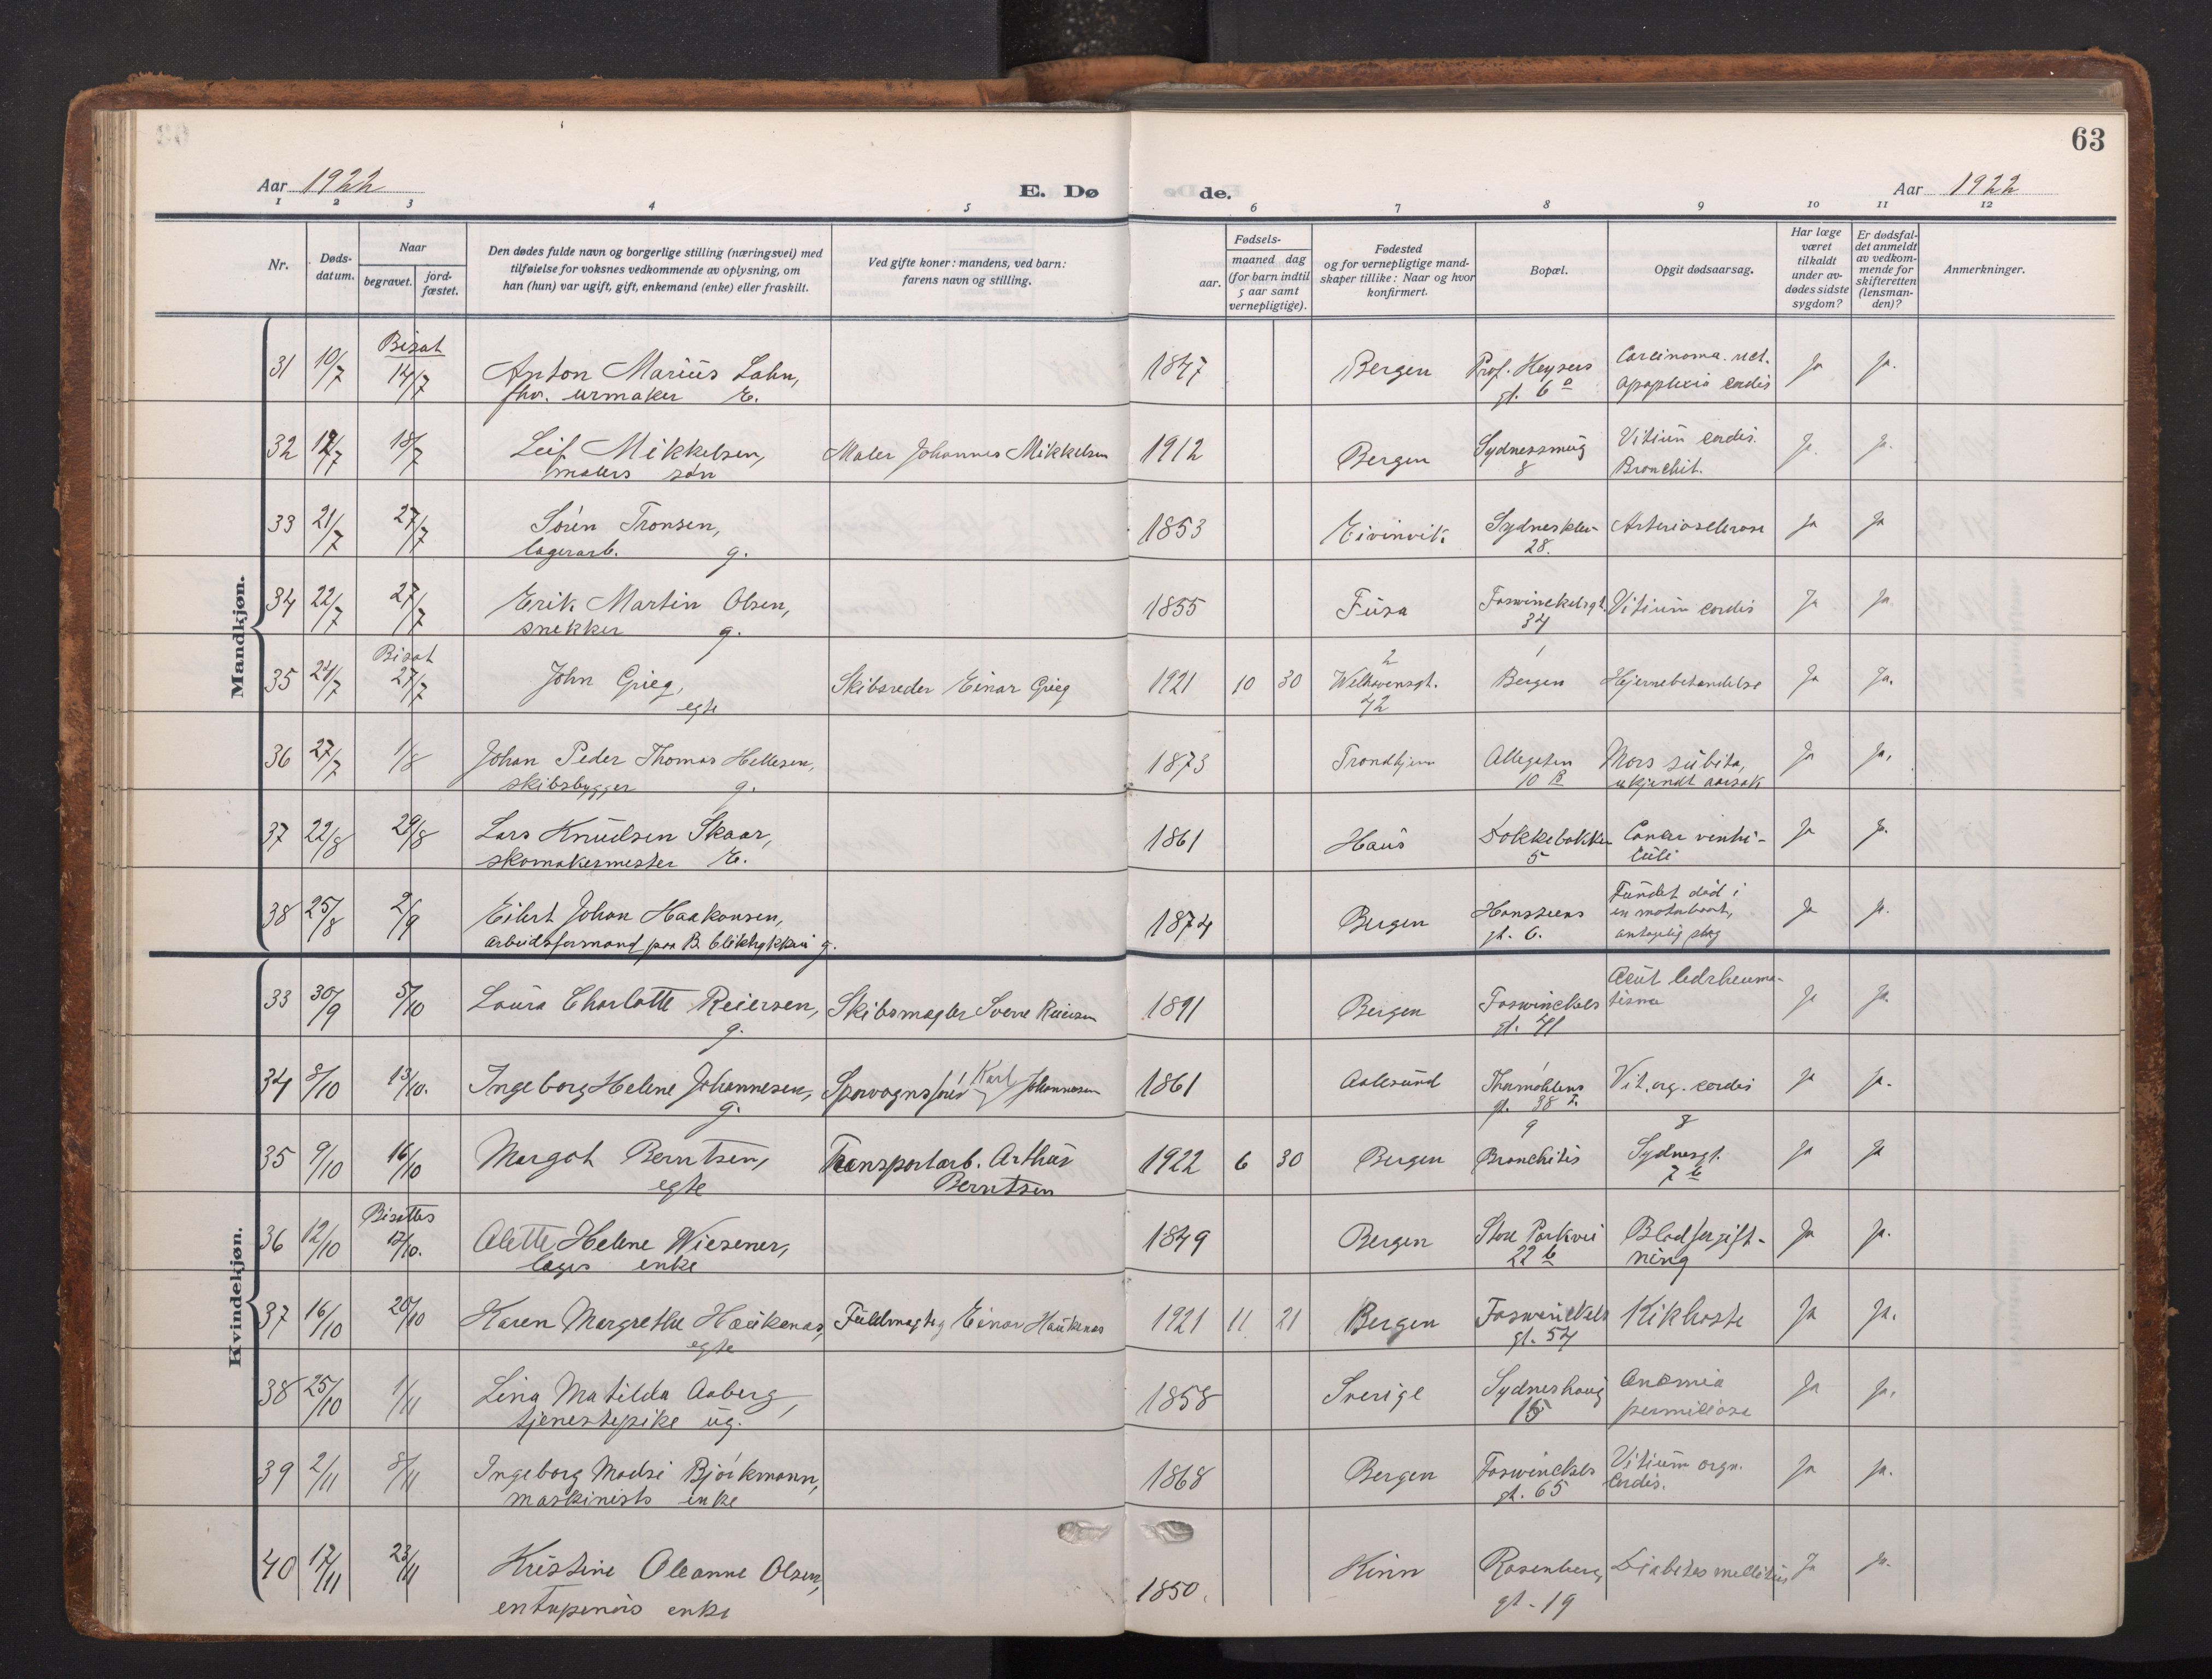 63
Aar 1922
E. Dø
de.
Aar 1922
1 2 3 4 5 6 7 8 9 10 11 12
Nr.
Døds-
datum.
Naar
begravet.
jord-
fæstet.
Den dødes fulde navn og borgerlige stilling (næringsvei) med
tilføielse for voksnes vedkommende av oplysning, om
han (hun) var ugift, gift, enkemand (enke) eller fraskilt.
Ved gifte koner: mandens, ved barn:
farens navn og stilling.
Fødsels-
aar.
maaned dag
(for barn indtil
5 aar samt
vernepligtige).
Fødested
og for vernepligtige mand-
skaper tillike: Naar og hvor
konfirmert.
Bopæl.
Opgit dødsaarsag.
Har læge
været
tilkaldt
under av-
dødes sidste
sygdom?
Er dødsfal-
det anmeldt
av vedkom-
mende for
skifteretten
(lensman-
den)?
Anmerkninger.
Mandkjøn.
Bisat
31 10/7 14/7 Anton Marius Lahn, 1847 Bergen Prof. Heysers Carcinoma. rect. Ja Ja.
fhv. urmaker E. gt. 6 a apoplexia cordis
32 17/7 18/7 Leif Mikkelsen, Maler Johannes Mikkelsen 1912 Bergen Sydnessmug Vitium cordis. Ja. Ja.
malers søn 8 Bronchit.
33 21/7 27/7 Sören Tronsen, 1853 Eivinvik. Sydneskлev Arteriosclerose Ja Ja
lagerarb. g. 28.
34 22/7 27/7 Erik Martin Olsen, 1855 Fusa Foswinckelsgt. Vitium cordis Ja Ja
snekker g. 34
Bisat 2 1
35 24/7 27/7 John Grieg, Skibsreder Einar Grieg 1921 10 30 Welhavensgt. Bergen Hjernebetændelse Ja Ja.
egte 72
36 27/7 1/8 Johan Peder Thomas Hellesen, 1873 Trondhjem Allegaten Mors subita, Ja Ja,
skibsbygger g. 10 B ukjendt aarsak
37 22/8 29/8 Lars Knudsen Skaar, 1861 Haus Dokkebakken Cancer ventri- Ja Ja.
skomakermester E. 5 culi
38 25/8 2/9 Eilert Johan Haakonsen, 1874 Bergen Hansteens Fundet död i Ja Ja.
arbeidsformand paa B. bliktrykkeri g. gt. 6. en motorbaat,
antagelig slag
Kvindekjøn.
33 30/9 5/10 Laura Charlotte Reiersen, Skibsmægler Sverre Reiersen 1891 Bergen Foswinckels Acut ledrheuma- Ja Ja.
g. gt. 41 tisme
34 8/10 13/10. Ingeborg Helene Johannesen, Sporvognsfører Karl Johannesen 1861 Aalesund Thormöhlens Vit. org. cordis Ja Ja.
g. gt. 38 I.
9 8
35 9/10 16/10 Margot Berntsen, Transportarb. Arthur 1922 6 30 Bergen Bronchitis Sydnesgt. Ja Ja
egte Berntsen 7 b
Bisettes
36 12/10 17/10. Alette Helene Wiesener, 1849 Bergen Store Parkvei Blodforgift- Ja Ja.
læges enke 22 b ning
37 16/10 20/10 Karen Margrethe Haukenæs, Fuldmægtig Einar Haukenæs 1921 11 21 Bergen Foswinckels Kikhoste Ja Ja.
egte gt. 54
38 25/10 1/11 Lina Matilda Aaberg, 1858 Sverige Sydneshaug Anæmia Ja Ja.
tjenestepike ug. 15 perniciosa
39 2/11 8/11 Ingeborg Madsi Björkmann, 1868 Bergen Foswinckels Vitium orgn. Ja Ja.
maskinists enke gt. 65 Cordis.
40 17/11 23/11 Kristine Oleanne Olsen, 1850. Kinn Rosenberg Diabetes mellitus Ja Ja.
entrepenörs enke gt. 19